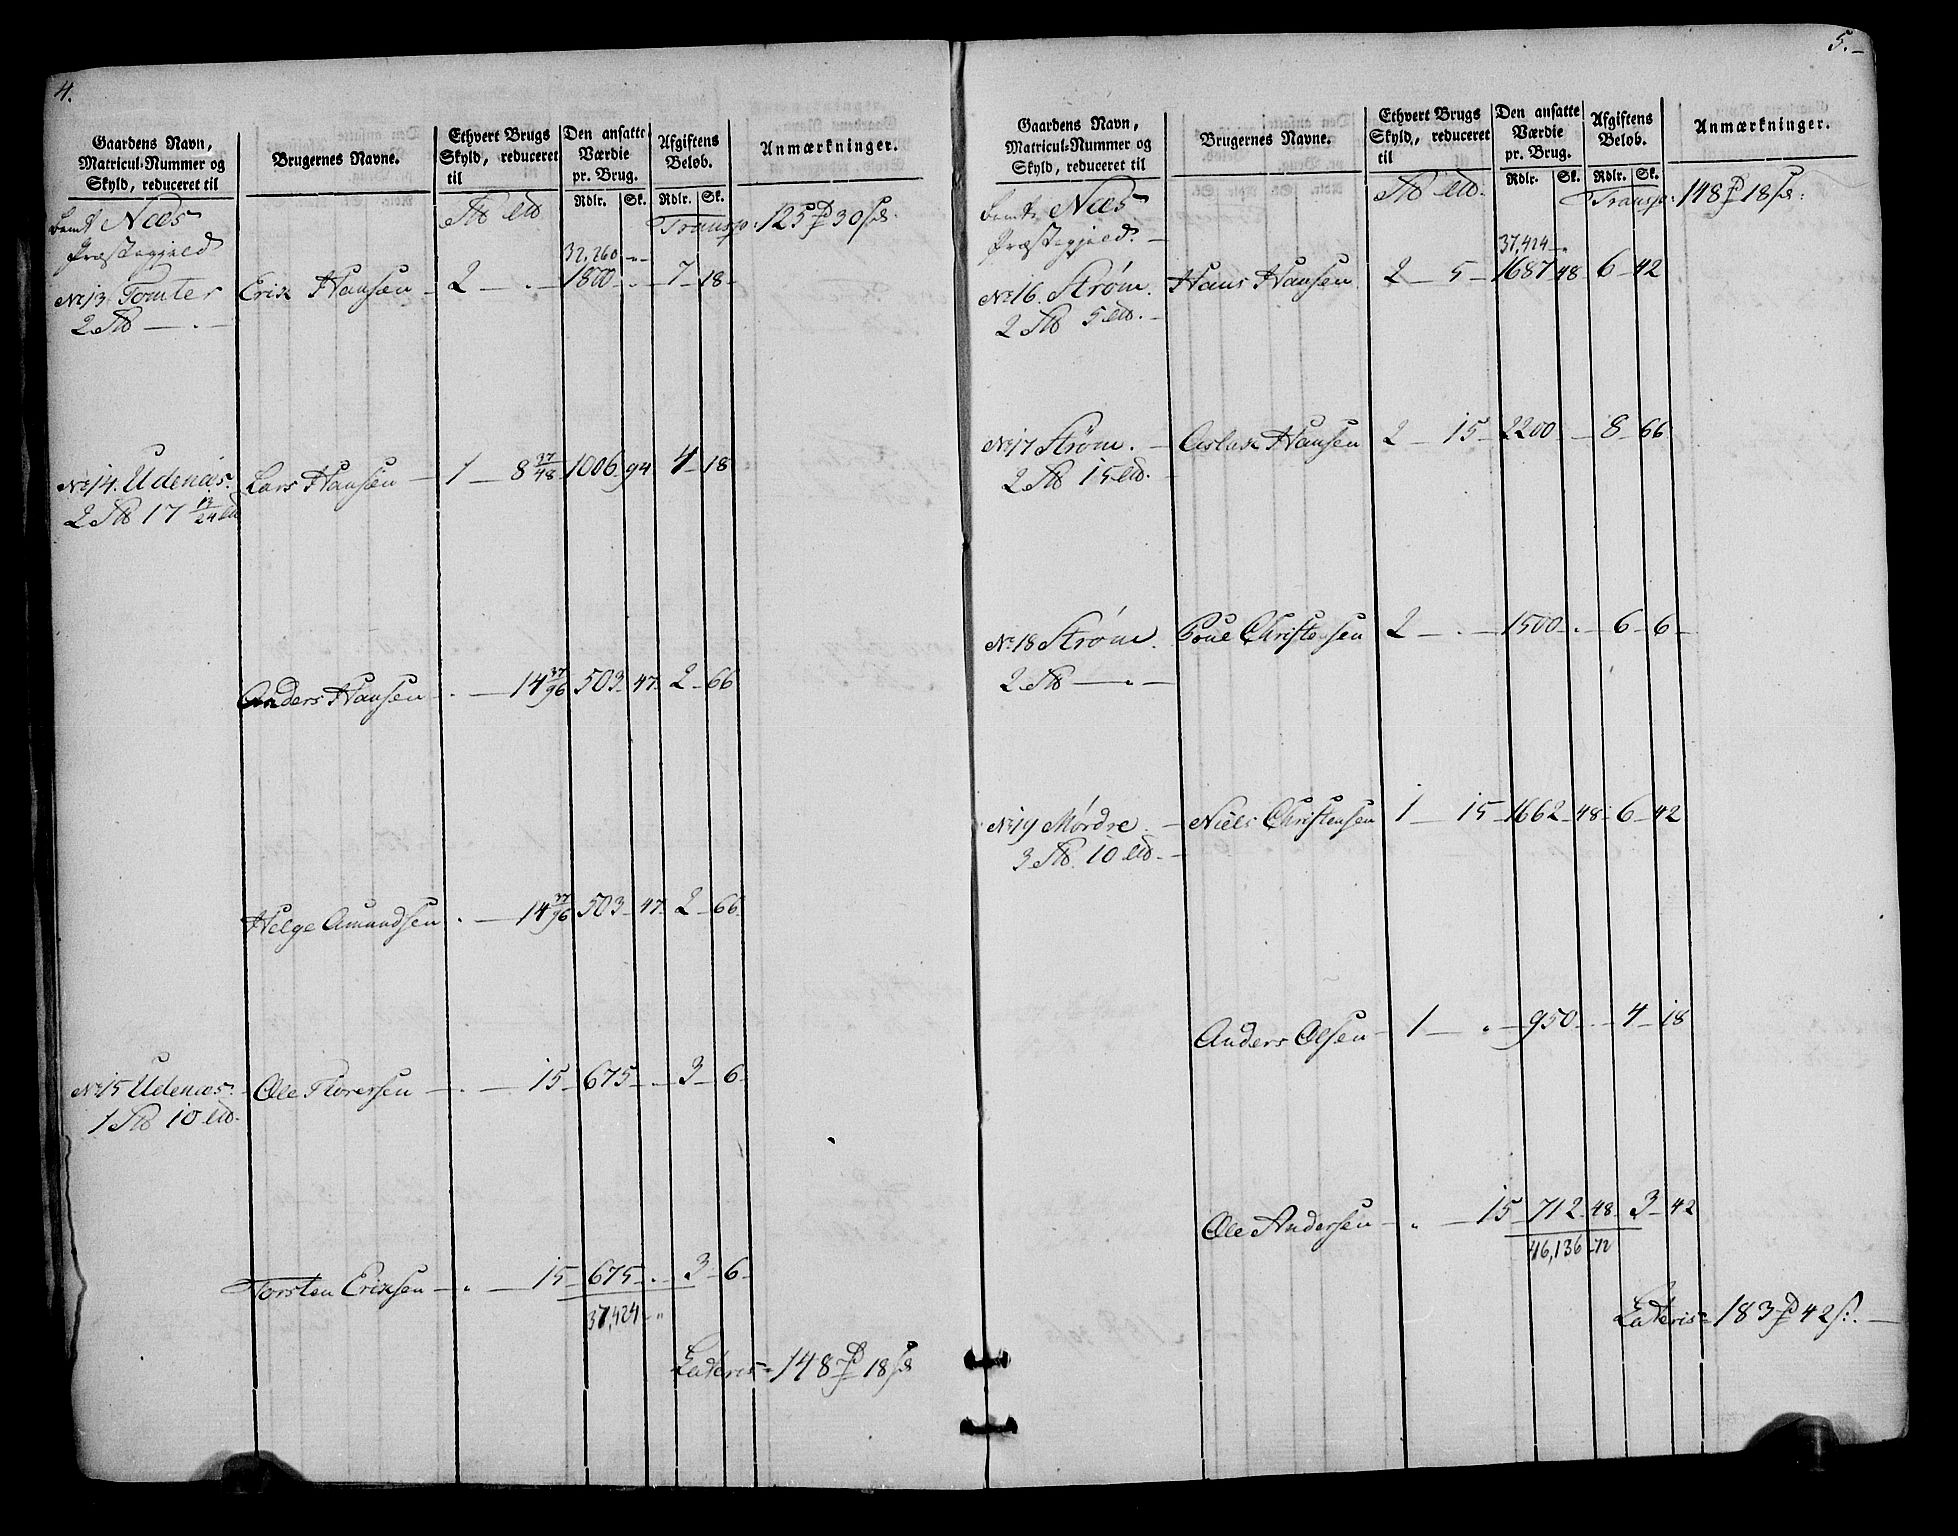 4.
Gaardens Navn, Matricul-Nummer og Skyld, reduceret til
Brugernes Navne.
Ethvert Brugs Skyld, reduceret til
Den ansatte Værdie pr. Brug.
Afgiftens Beløb.
Anmærkninger.
Rdlr. Sk. Rdlr. Sk.
bemt Næs
Præstegjeld
Transp: 125 30 s.
32,260 - "
No 13. Tomter Erik Hansen 2 — . — 1800 . — 7 — 18
2
No 14. Udenæs. Lars Hansen 1 — 8 37/48 1006 94 4 18
2 17 13/24
Anders Hansen . — 14 37/96 503 47 2 66
Helge Amundsen . — 14 37/96 503 47 2 66
No 15 Udenæs. Ole Torersen . — 15 675 . 3 6
1 10
Torsten Erichsen " — 15 675 . 3 6
37,424 - "
Lateris 148 18
5.
Gaardens Navn, Matricul-Nummer og Skyld, reduceret til
Brugernes Navne.
Ethvert Brugs Skyld, reduceret til
Den ansatte Værdie pr. Brug.
Afgiftens Beløb.
Anmærkninger.
Rdlr. Sk. Rdlr. Sk.
bemt Næs
Præstegjeld.
Transp: 148 18
37,424 - "
No 16. Strøm. Hans Hansen 2 — 5 1687 48 6 42
2 5
No 17 Strøm. Aslak Hansen 2 — 15 2200 — 8 66
2 15
No 18 Strøm. Poul Christensen 2 — . — 1500 . 6 6
2
No 19 Mørdre. Niels Christensen 1 — 15 1662 48 6 42
3 10
Anders Olsen 1 — " 950 . 4 18
Ole Andersen " — 15 712 48 3 42
46,136 - 72
Lateris 183 42 s.